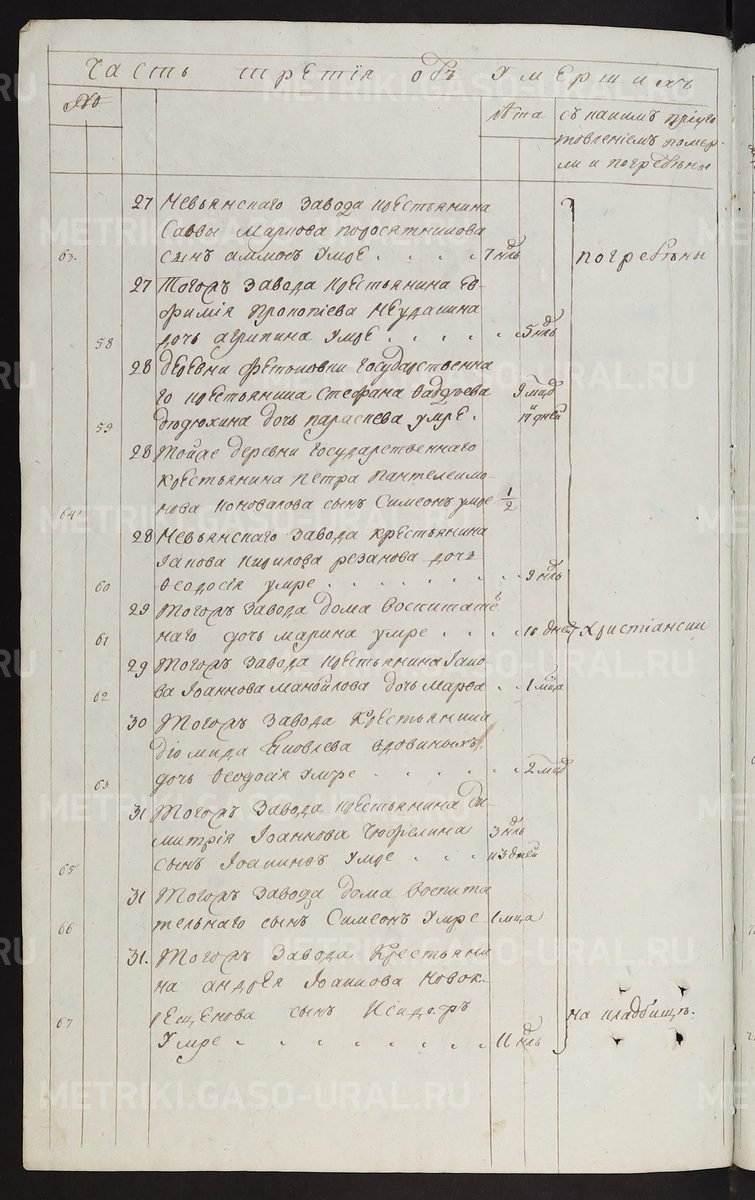 Часть третія объ умершихъ
№
лѣта
съ какимъ пріуго
товленіемъ помер-
ли и погребены
27 Невьянскаго завода крестьянина
Саввы Маркова поросятникова
63. сынъ аммосъ умре . . . . 7 ндль погребены
27 Тогожъ завода крестьянина Ев-
фимія Прокопіева Неудакина
58 дочь агрипина умре . . . . . 5 ндль
28 деревни Фетковки государственна
го крестьянина Стефана Фаддѣева 9 мцъ
59 дюдюхина дочь параскева умре . 17 дней
28 Тойже деревни государственнаго
крестьянина петра пантелеимо-
64 нова коновалова сынъ Симеонъ умре 1/2
28 Невьянскаго завода крестьянина
Іакова Кирилова резанова дочь
60 Ѳеодосія умре . . . . . . . . 9 ндль
29 Тогожъ завода дома воспитате
61 наго дочь марина умре . . . 10 дней Христіански
29 Тогожъ завода крестьянина Іако-
62 ва Іоаннова мануйлова дочь марѳа . . 1 мца
30 Тогожъ завода крестьянина
діомида Яковлева вдовиныхъ
63 дочь Ѳеодосія умре . . . . . . 2 мца
31 Тогожъ завода крестьянина ди-
митрія Іоаннова 3 ндль
65 сынъ Іоаннъ умре . . . и 3 дней
31 Тогожъ завода дома воспита
66 тельнаго сынъ Симеонъ умре 1 мца
31. Тогожъ завода крестьяни
на андрея Іоаннова новок-
67 рещенова сынъ Исидоръ на кладбищѣ.
умре . . . . . . . . . 11 ндль
METRIKI.GASO-URAL.RU